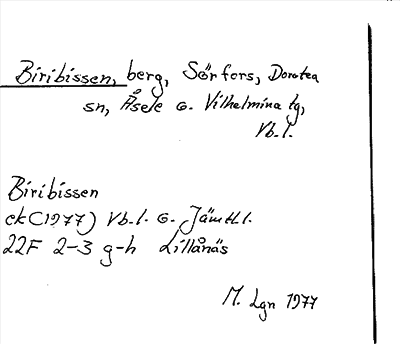 Biribissen, berg, Sörfors, Dorotea
sn, Åsele o. Vilhelmina tg,
Vb.l.
Biribissen
ek (1977) Vb.l. o. Jämtl.l.
22F 2-3 g-h Lillånäs
M. Lgn 1977